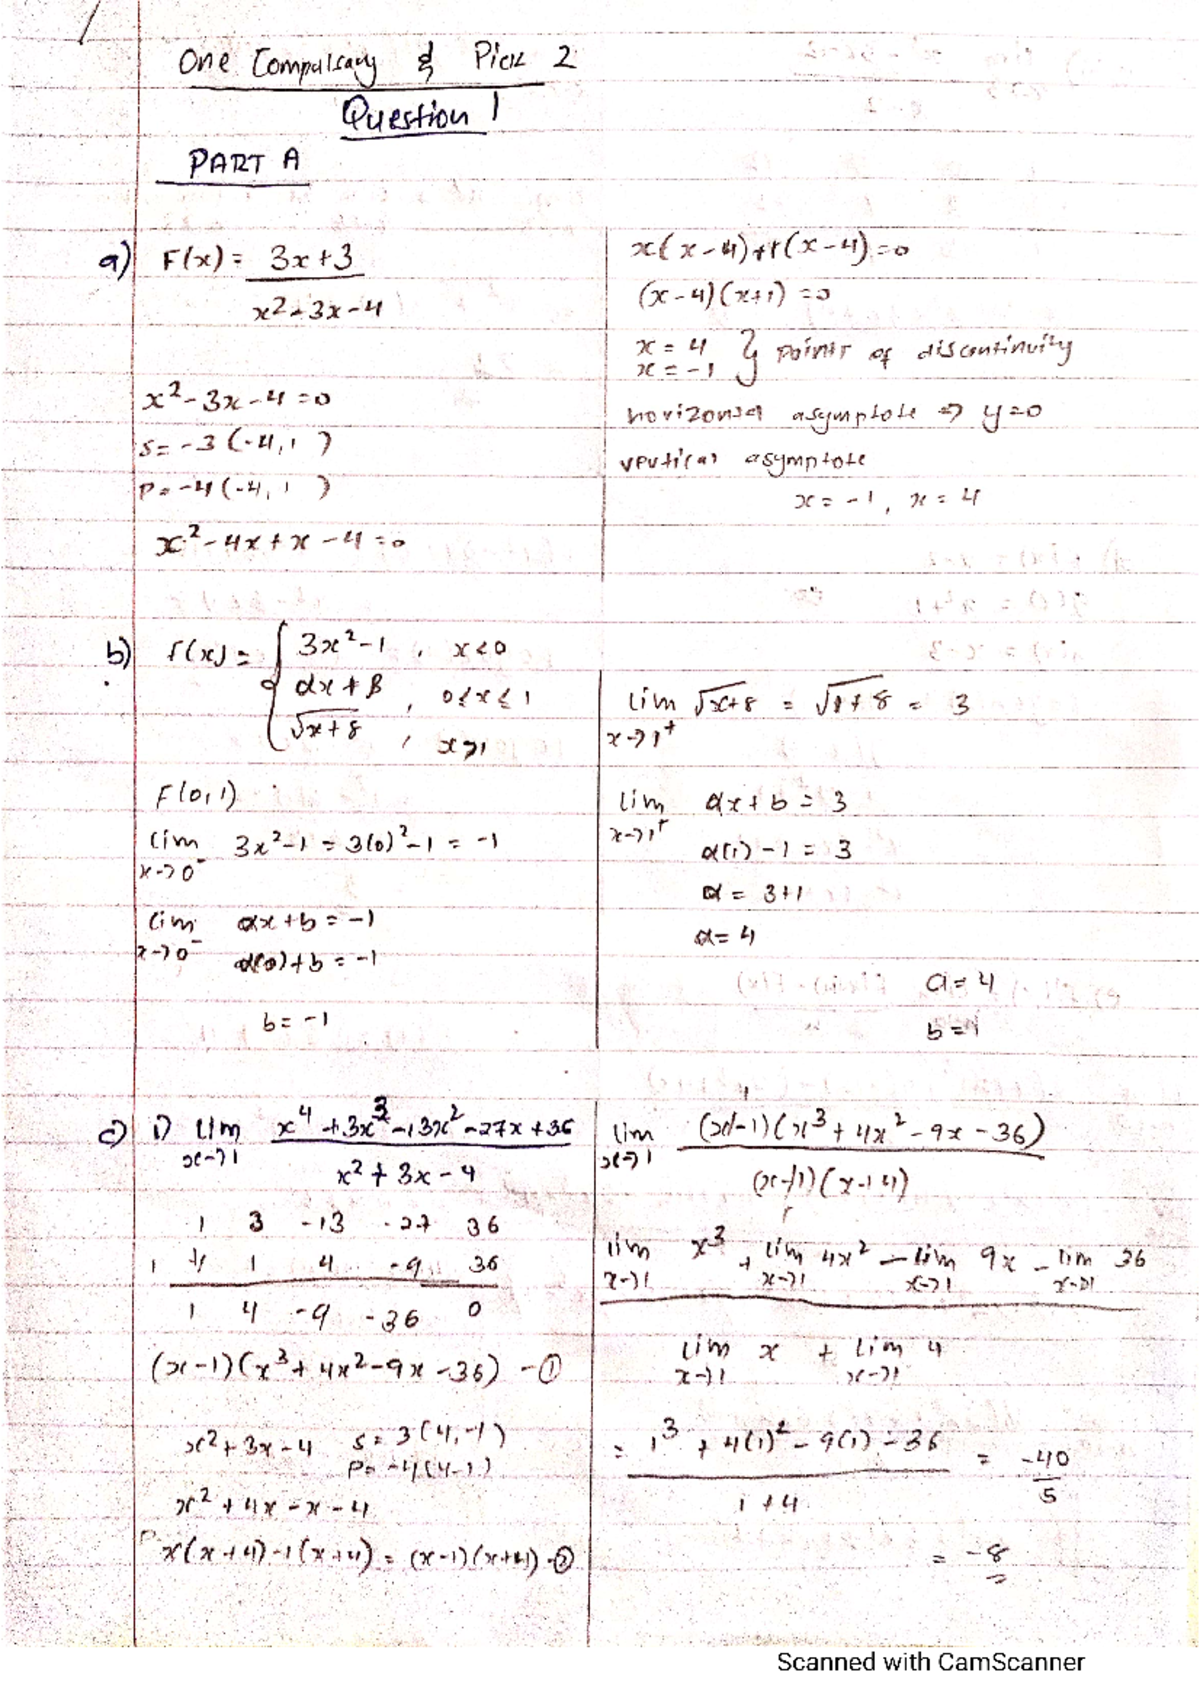 One Compulsary & Pick 2
Question 1
PART A
a) F(x) = 3x+3
x²-3x-4
x²-3x-4=0
S= -3 (-4, 1 )
P= -4 (-4, 1 )
x²-4x+x-4=0
x(x-4)+1(x-4)=0
(x-4)(x+1)=0
x = 4 } points of discontinuity
x = -1
horizontal asymptote ⇒ y=0
vertical asymptote
x = -1, x = 4
b) f(x) = { 3x²-1 , x<0
αx+β , 0≤x≤1
√x+8 , x>1
F(0,1)
lim 3x²-1 = 3(0)²-1 = -1
x→0⁻
lim αx+b = -1
x→0⁻
α(0)+b = -1
b = -1
lim √x+8 = √1+8 = 3
x→1⁺
lim αx+b = 3
x→1⁺
α(1)-1 = 3
α = 3+1
α = 4
a = 4
b = 1
c) i) lim x⁴+3x³-13x²-27x+36
x→1 x²+3x-4
1 3 -13 -27 36
1 1 4 -9 36
1 4 -9 -36 0
(x-1)(x³+4x²-9x-36) -①
x²+3x-4 S= 3(4,-1)
P= -4(4-1)
x²+4x-x-4
x(x+4)-1(x+4) = (x-1)(x+4) -②
lim (x-1)(x³+4x²-9x-36)
x→1 (x-1)(x+4)
lim x³ + lim 4x² - lim 9x - lim 36
x→1 x→1 x→1 x→1
lim x + lim 4
x→1 x→1
= 1³+4(1)²-9(1)-36 = -40
1+4 5
= -8
Scanned with CamScanner